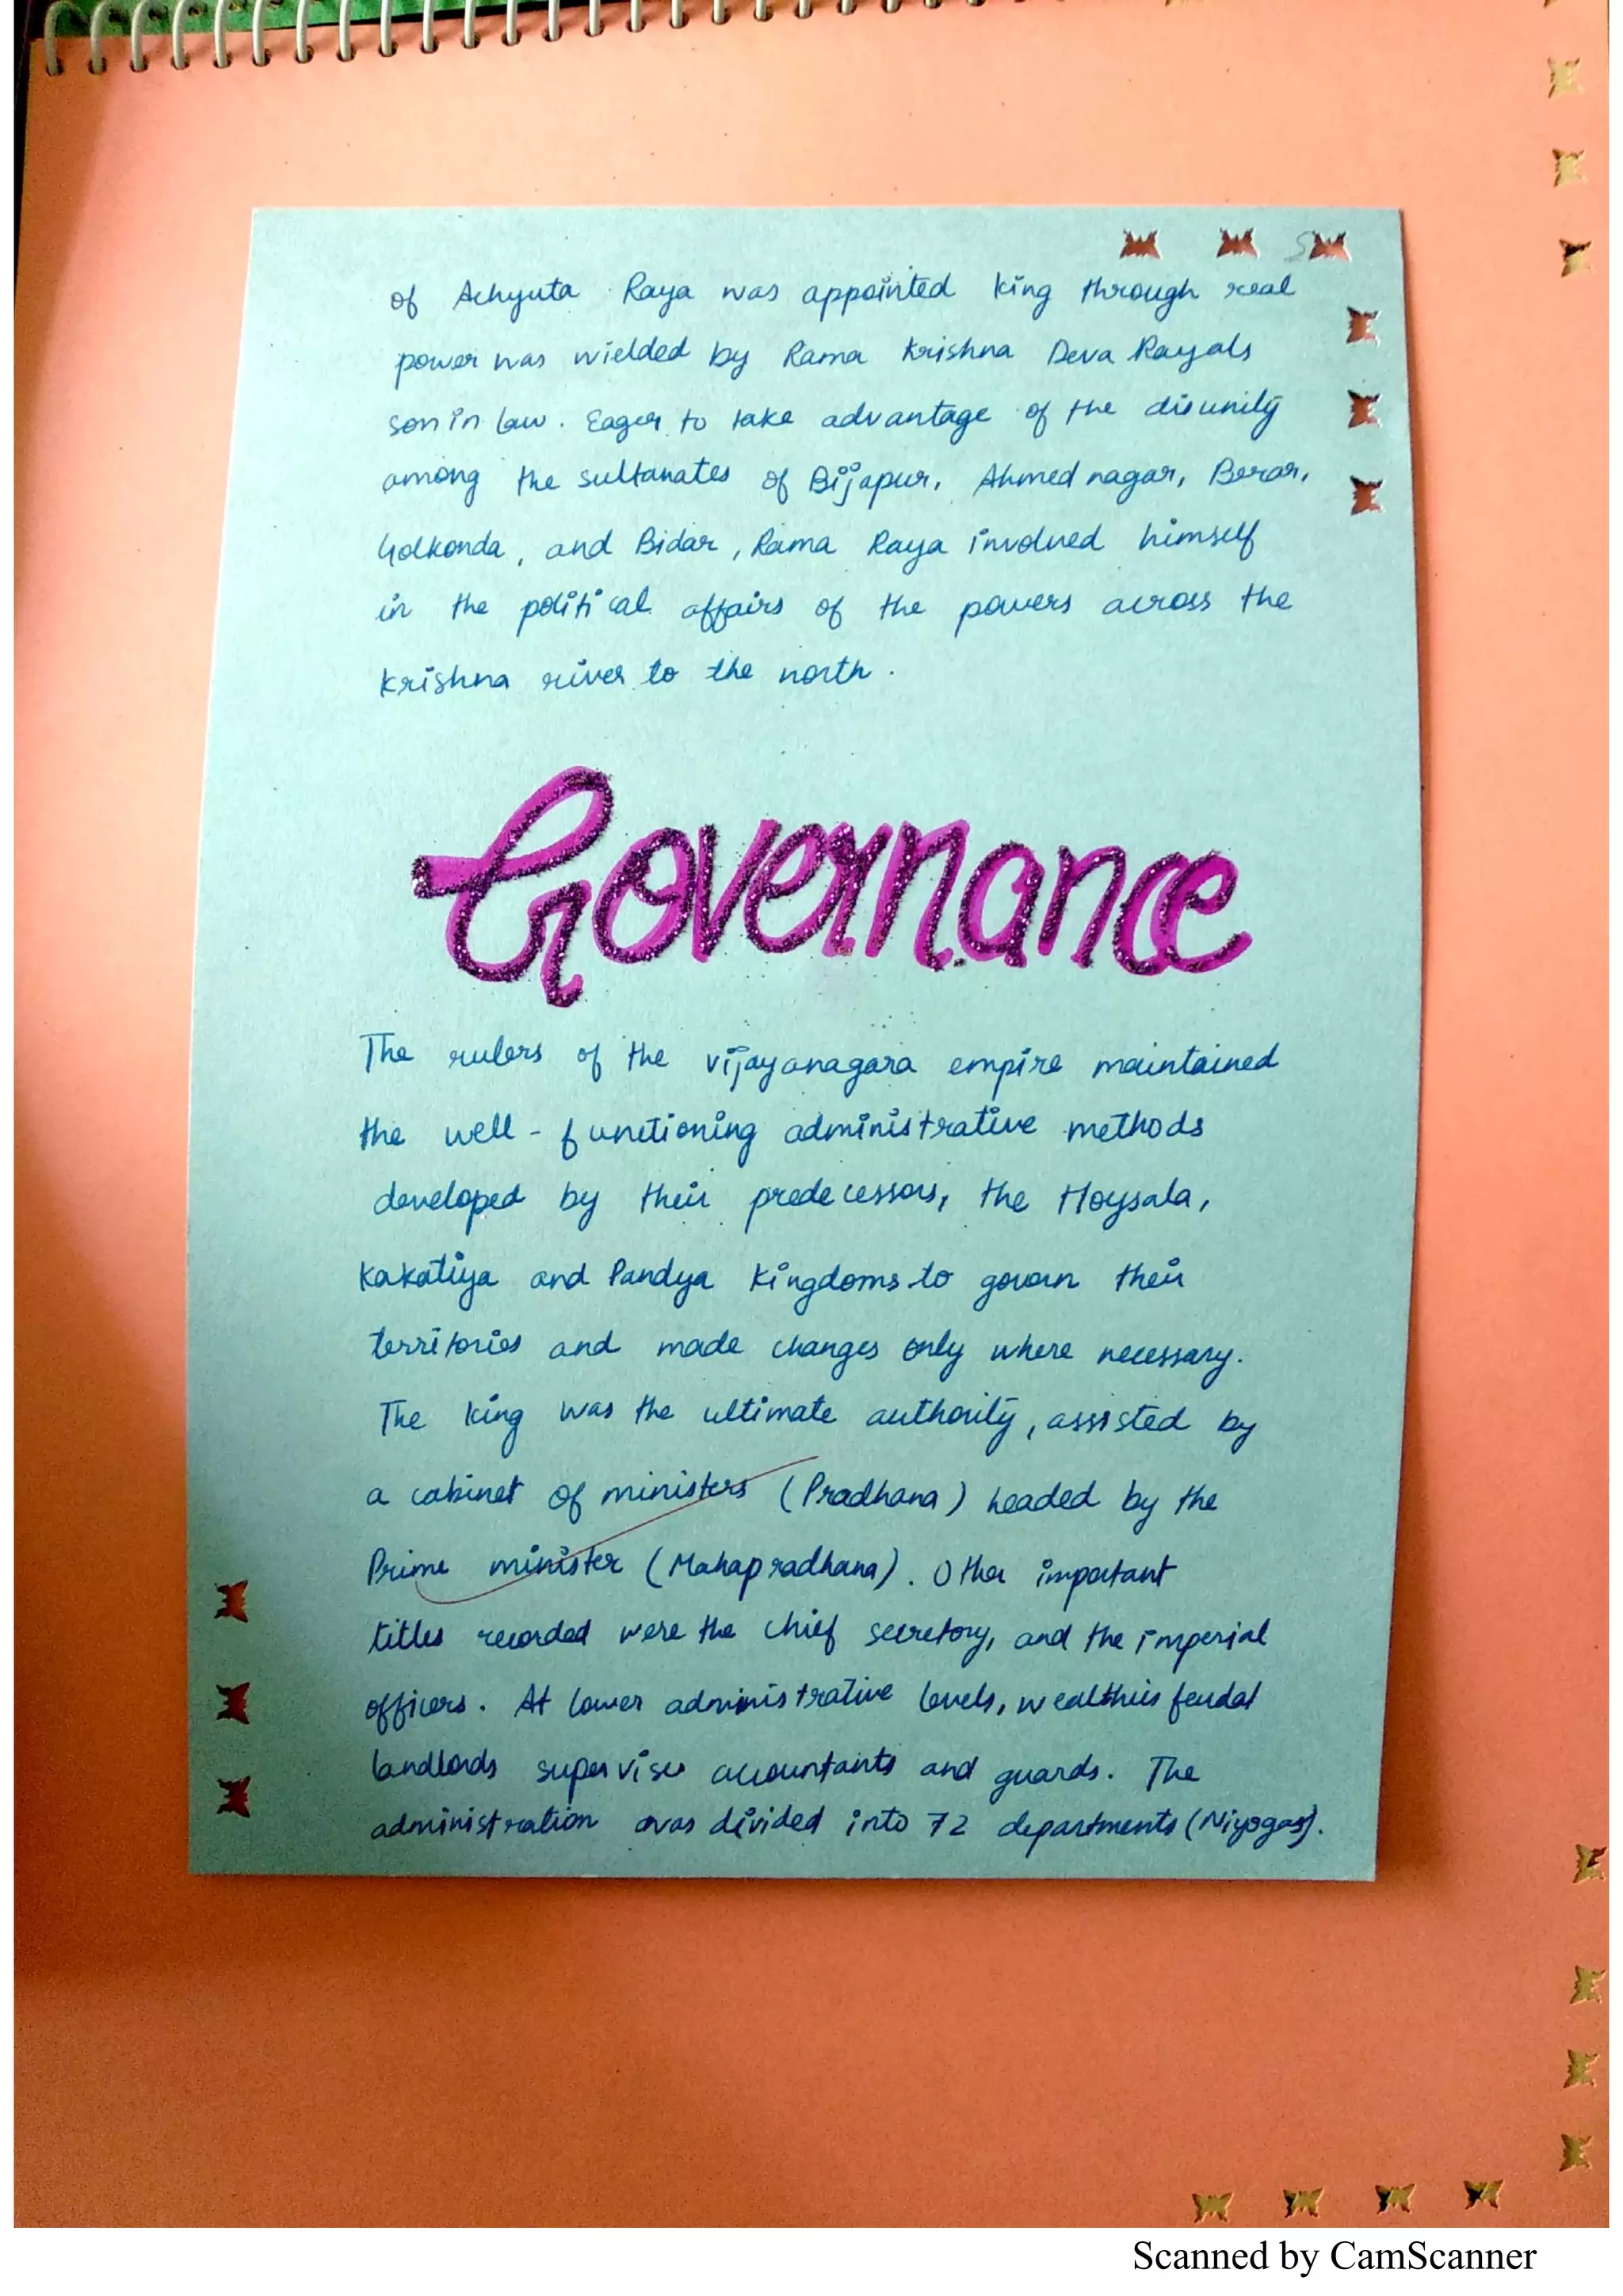 5
of Achyuta Raya was appointed king through real
power was wielded by Rama Krishna Deva Rayals
son in law. Eager to take advantage of the disunity
among the sultanates of Bijapur, Ahmednagar, Berar,
Golkonda, and Bidar, Rama Raya involved himself
in the political affairs of the powers across the
Krishna river to the north.
Governance
The rulers of the vijayanagara empire maintained
the well-functioning administrative methods
developed by their predecessors, the Hoysala,
Kakatiya and Pandya Kingdoms to govern their
territories and made changes only where necessary.
The king was the ultimate authority, assisted by
a cabinet of ministers (Pradhana) headed by the
Prime minister (Mahapradhana). Other important
titles recorded were the chief secretory, and the imperial
officers. At lower administrative levels, wealthies feudal
landlords supervises accountants and guards. The
administration was divided into 72 departments (Niyogas).
Scanned by CamScanner